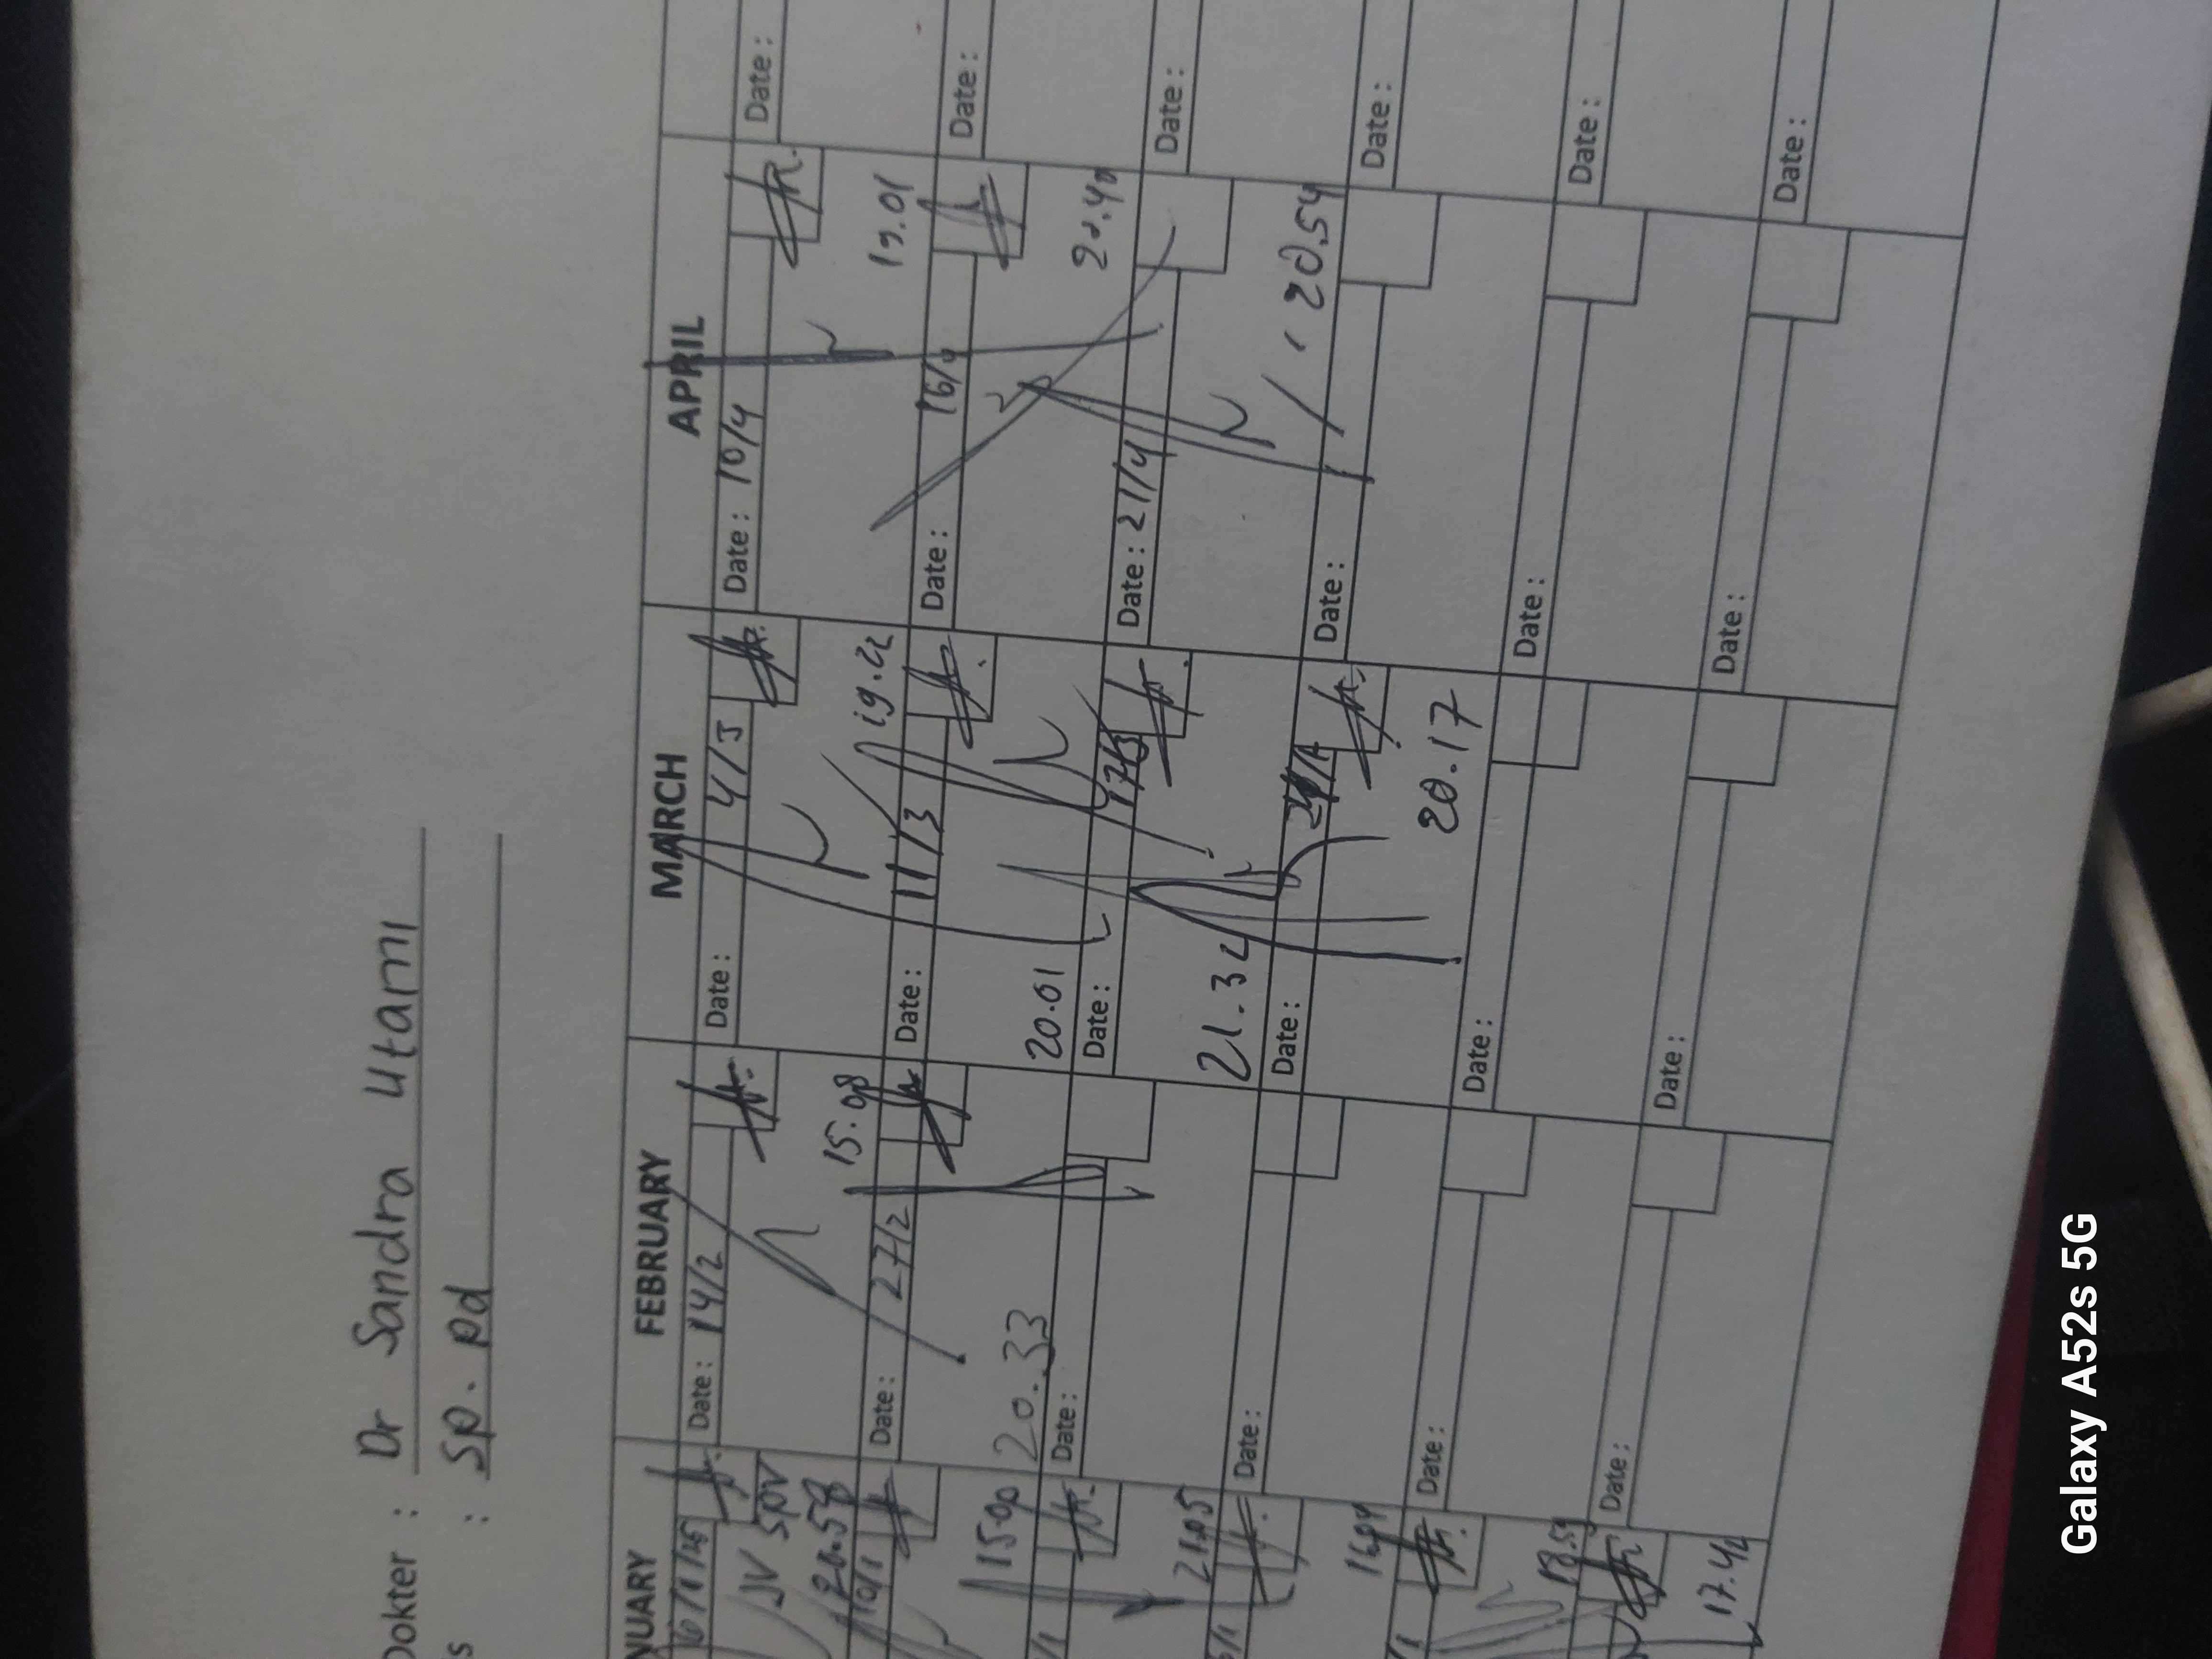 Dokter : Dr Sandra Utami
s : Sp. Pd
NUARY FEBRUARY MARCH APRIL
6/1/25 Date : 14/2 Date : 4/3 Date : 10/4 Date :
JV SPV
20.58 15.08 19.22 19.01
10/1 Date : 27/2 Date : 11/3 Date : 16/4 Date :
15.09 20.33 20.01 20.40
/1 Date : Date : 17/3 Date : 21/4 Date :
21.05 21.32 20.54
/1 Date : Date : Date : Date :
16.04 20.17
/1 Date : Date : Date : Date :
18.59
Date : Date : Date : Date :
17.42
Galaxy A52s 5G